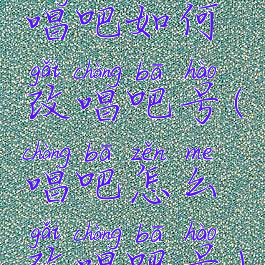 唱吧如何
gǎi chàng bā hào
改唱吧号(
chàng bā zěn me
唱吧怎么
gǎi chàng bā hào
改唱吧号)